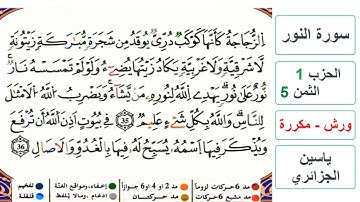 اِ۬لزُّجَاجَةُ كَأَنَّهَا كَوْكَبٞ دُرِّيّٞ يُوقَدُ مِن شَجَرَةٖ مُّبَٰرَكَةٖ زَيْتُونَةٖ
لَّا شَرْقِيَّةٖ وَلَا غَرْبِيَّةٖ يَكَادُ زَيْتُهَا يُضِےٓءُ وَلَوْ لَمْ تَمْسَسْهُ نَارٞ
نُّورٌ عَلَىٰ نُورٖ يَهْدِے اِ۬للَّهُ لِنُورِهِۦ مَنْ يَّشَآءُ وَيَضْرِبُ اُ۬للَّهُ اُ۬لَامْثَٰلَ
لِلنَّاسِ وَاللَّهُ بِكُلِّ شَےْءٍ عَلِيمٞ 35 فِے بُيُوتٍ اَذِنَ اَ۬للَّهُ أَن تُرْفَعَ
وَيُذْكَرَ فِيهَا اَ۪سْمُهُۥ يُسَبِّحُ لَهُۥ فِيهَا بِالْغُدُوِّ وَالَاصَالِ 36
سورة النور
الحزب 1
الثمن 5
ورش - مكررة
ياسين
الجزائري
مد 6 حركات لزوماً
مد 2 أو 4 أو 6 جوازاً
إخفاء، ومواقع الغنة
تفخيم
مد مشبع 6 حركات
مد حركتان
ادغام، ومالا يلفظ
قلقلة